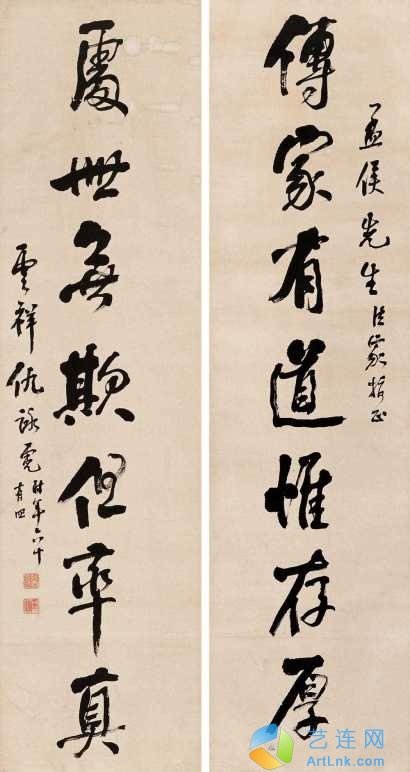 孟侯先生法家指正
傳家有道惟存厚
處世無欺但率真
雲祥仇詠霓時年六十有四
艺连网
ArtLnk.com